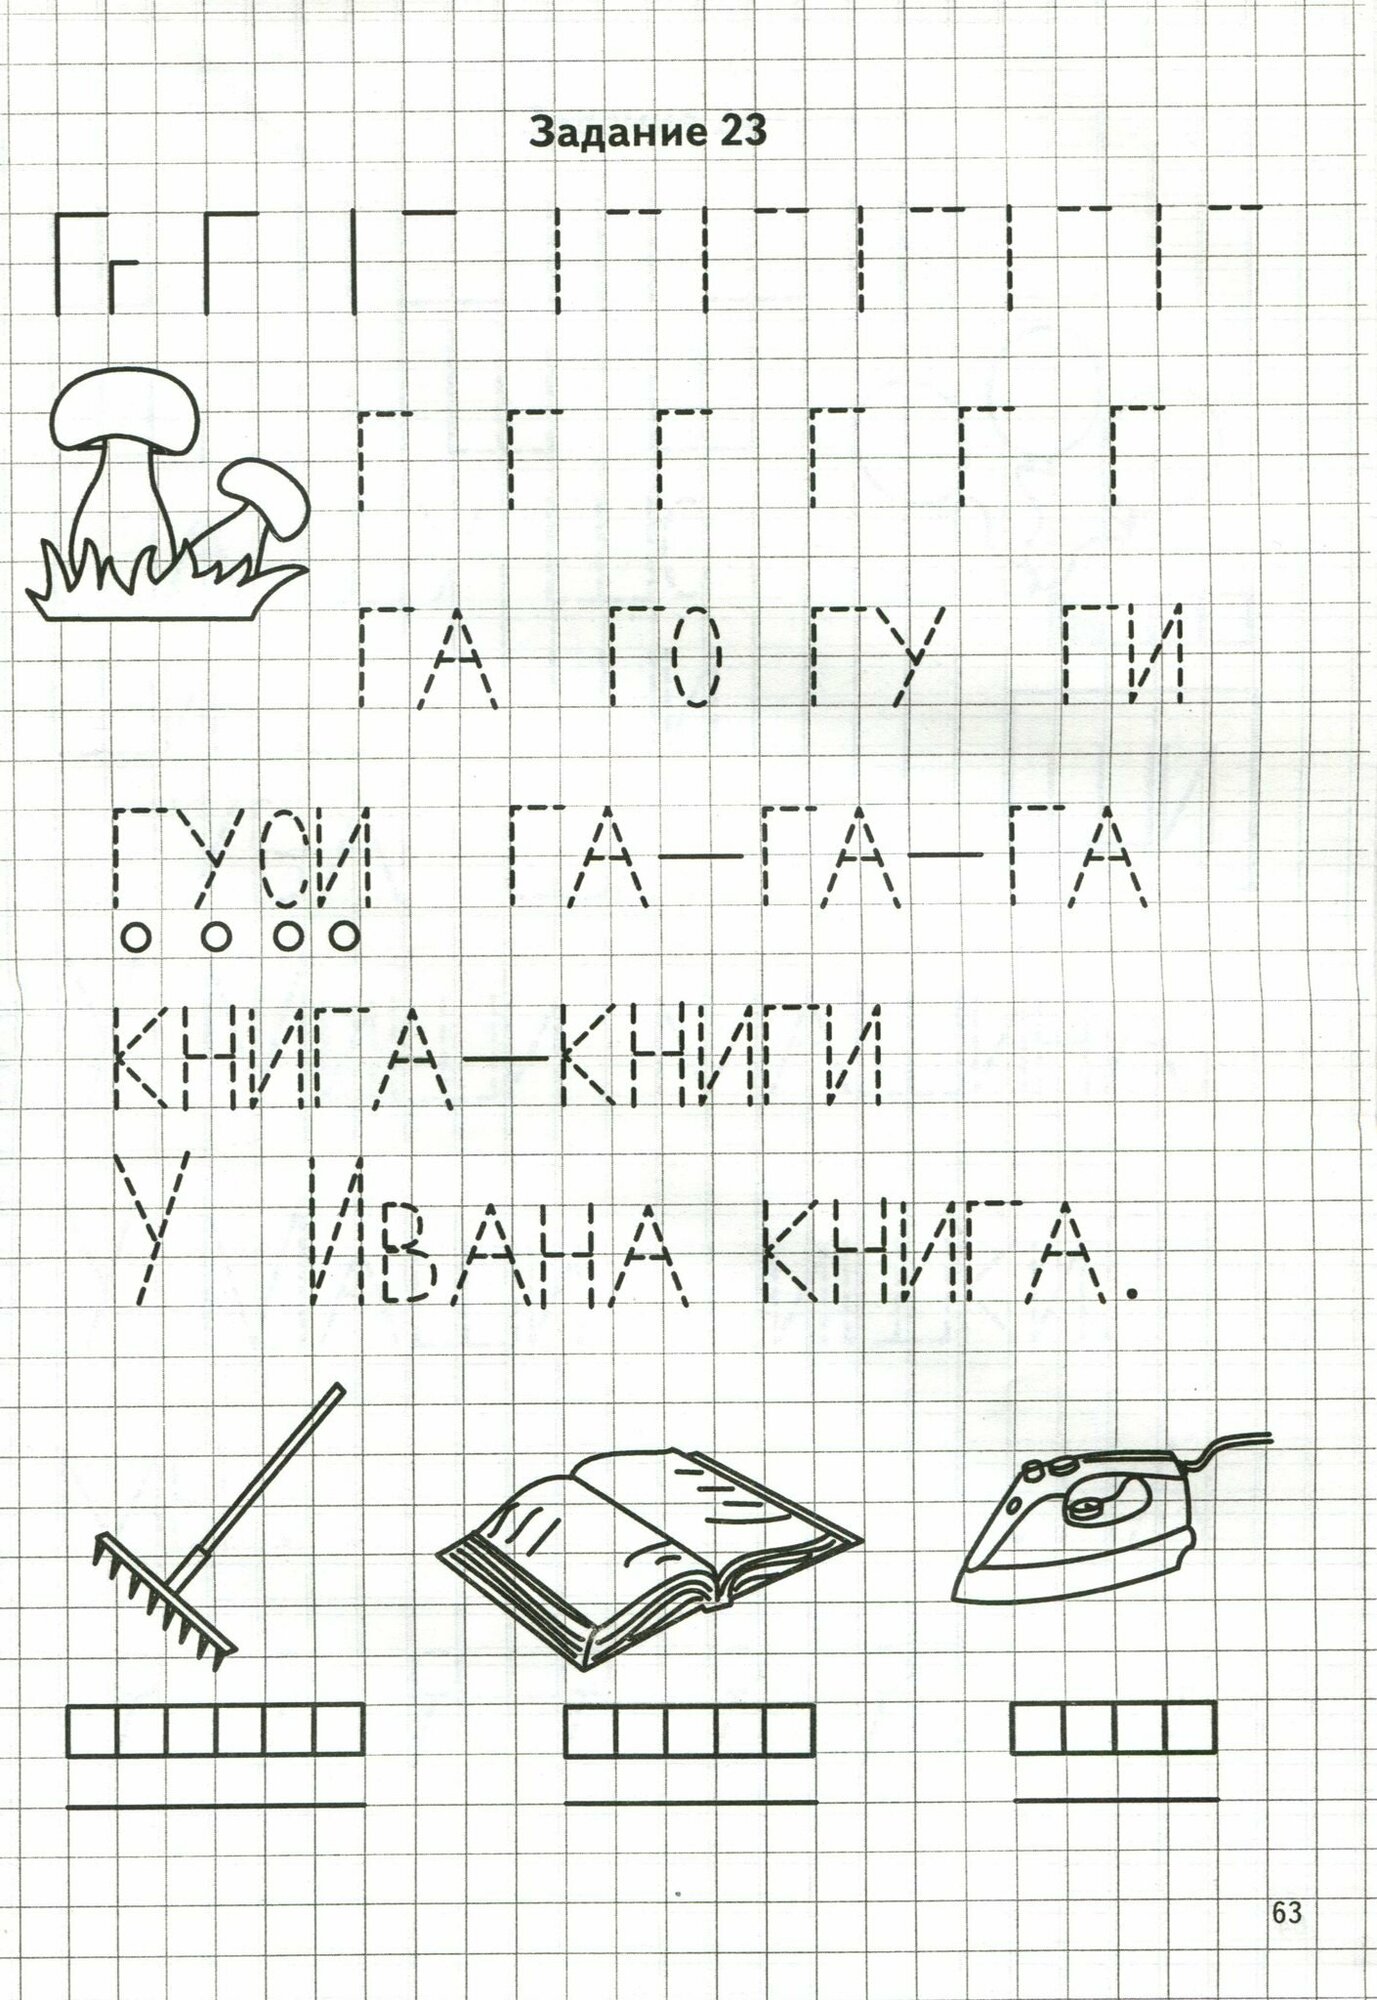 Задание 23
Г г Г
Г Г Г Г Г Г
ГА ГО ГУ ГИ
ГУСИ ГА — ГА — ГА
КНИГА — КНИГИ
У ИВАНА КНИГА.
63